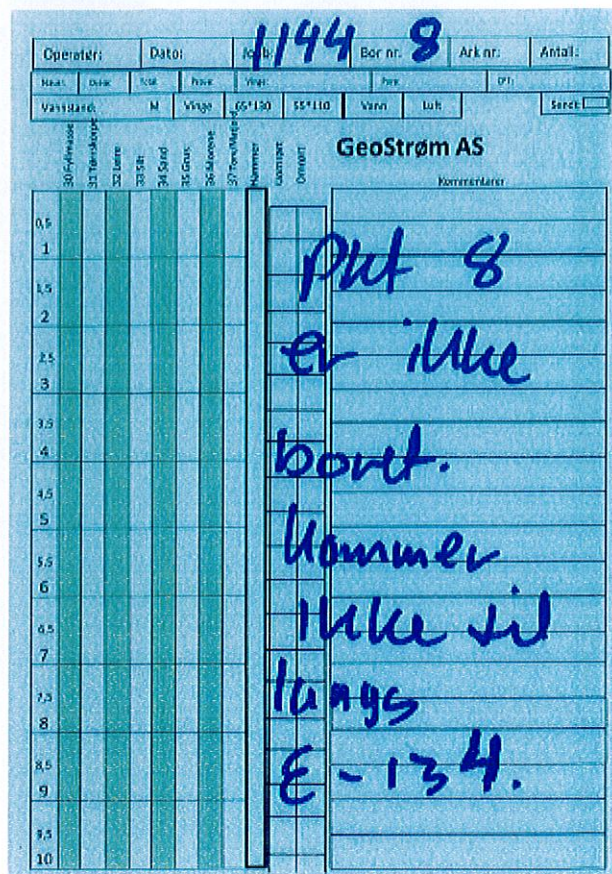 Operatør: Dato: Jobb: 1144 Bor nr. 8 Ark nr: Antall:
Vannstand: M Vinge 65*130 55*110 Vann Luft Sendt:
30 Fyllmasse
31 Tørrskorpe
32 Leire
33 Silt
34 Sand
35 Grus
36 Morene
37 Torv/Matjord
Hammer
Omrørt
GeoStrøm AS
Kommentarer
0,5
1
1,5
2
2,5
3
3,5
4
4,5
5
5,5
6
6,5
7
7,5
8
8,5
9
9,5
10
Pkt 8
er ikke
boret.
Kommer
ikke til
langs
E-134.